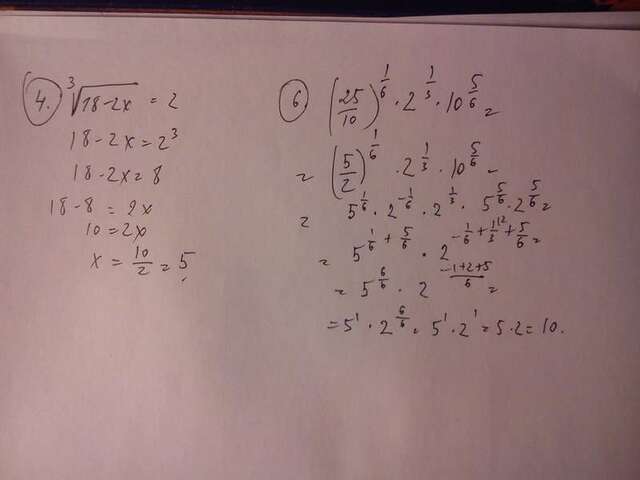 4. ³√(18-2x) = 2
18-2x = 2³
18-2x = 8
18-8 = 2x
10 = 2x
x = 10/2 = 5
6 (25/10)^(1/6) · 2^(1/3) · 10^(5/6) =
= (5/2)^(1/6) · 2^(1/3) · 10^(5/6) =
= 5^(1/6) · 2^(-1/6) · 2^(1/3) · 5^(5/6) · 2^(5/6) =
= 5^(1/6 + 5/6) · 2^(-1/6 + 1/3^(12) + 5/6) =
= 5^(6/6) · 2^((-1+2+5)/6) =
= 5¹ · 2^(6/6) = 5¹ · 2¹ = 5·2 = 10.